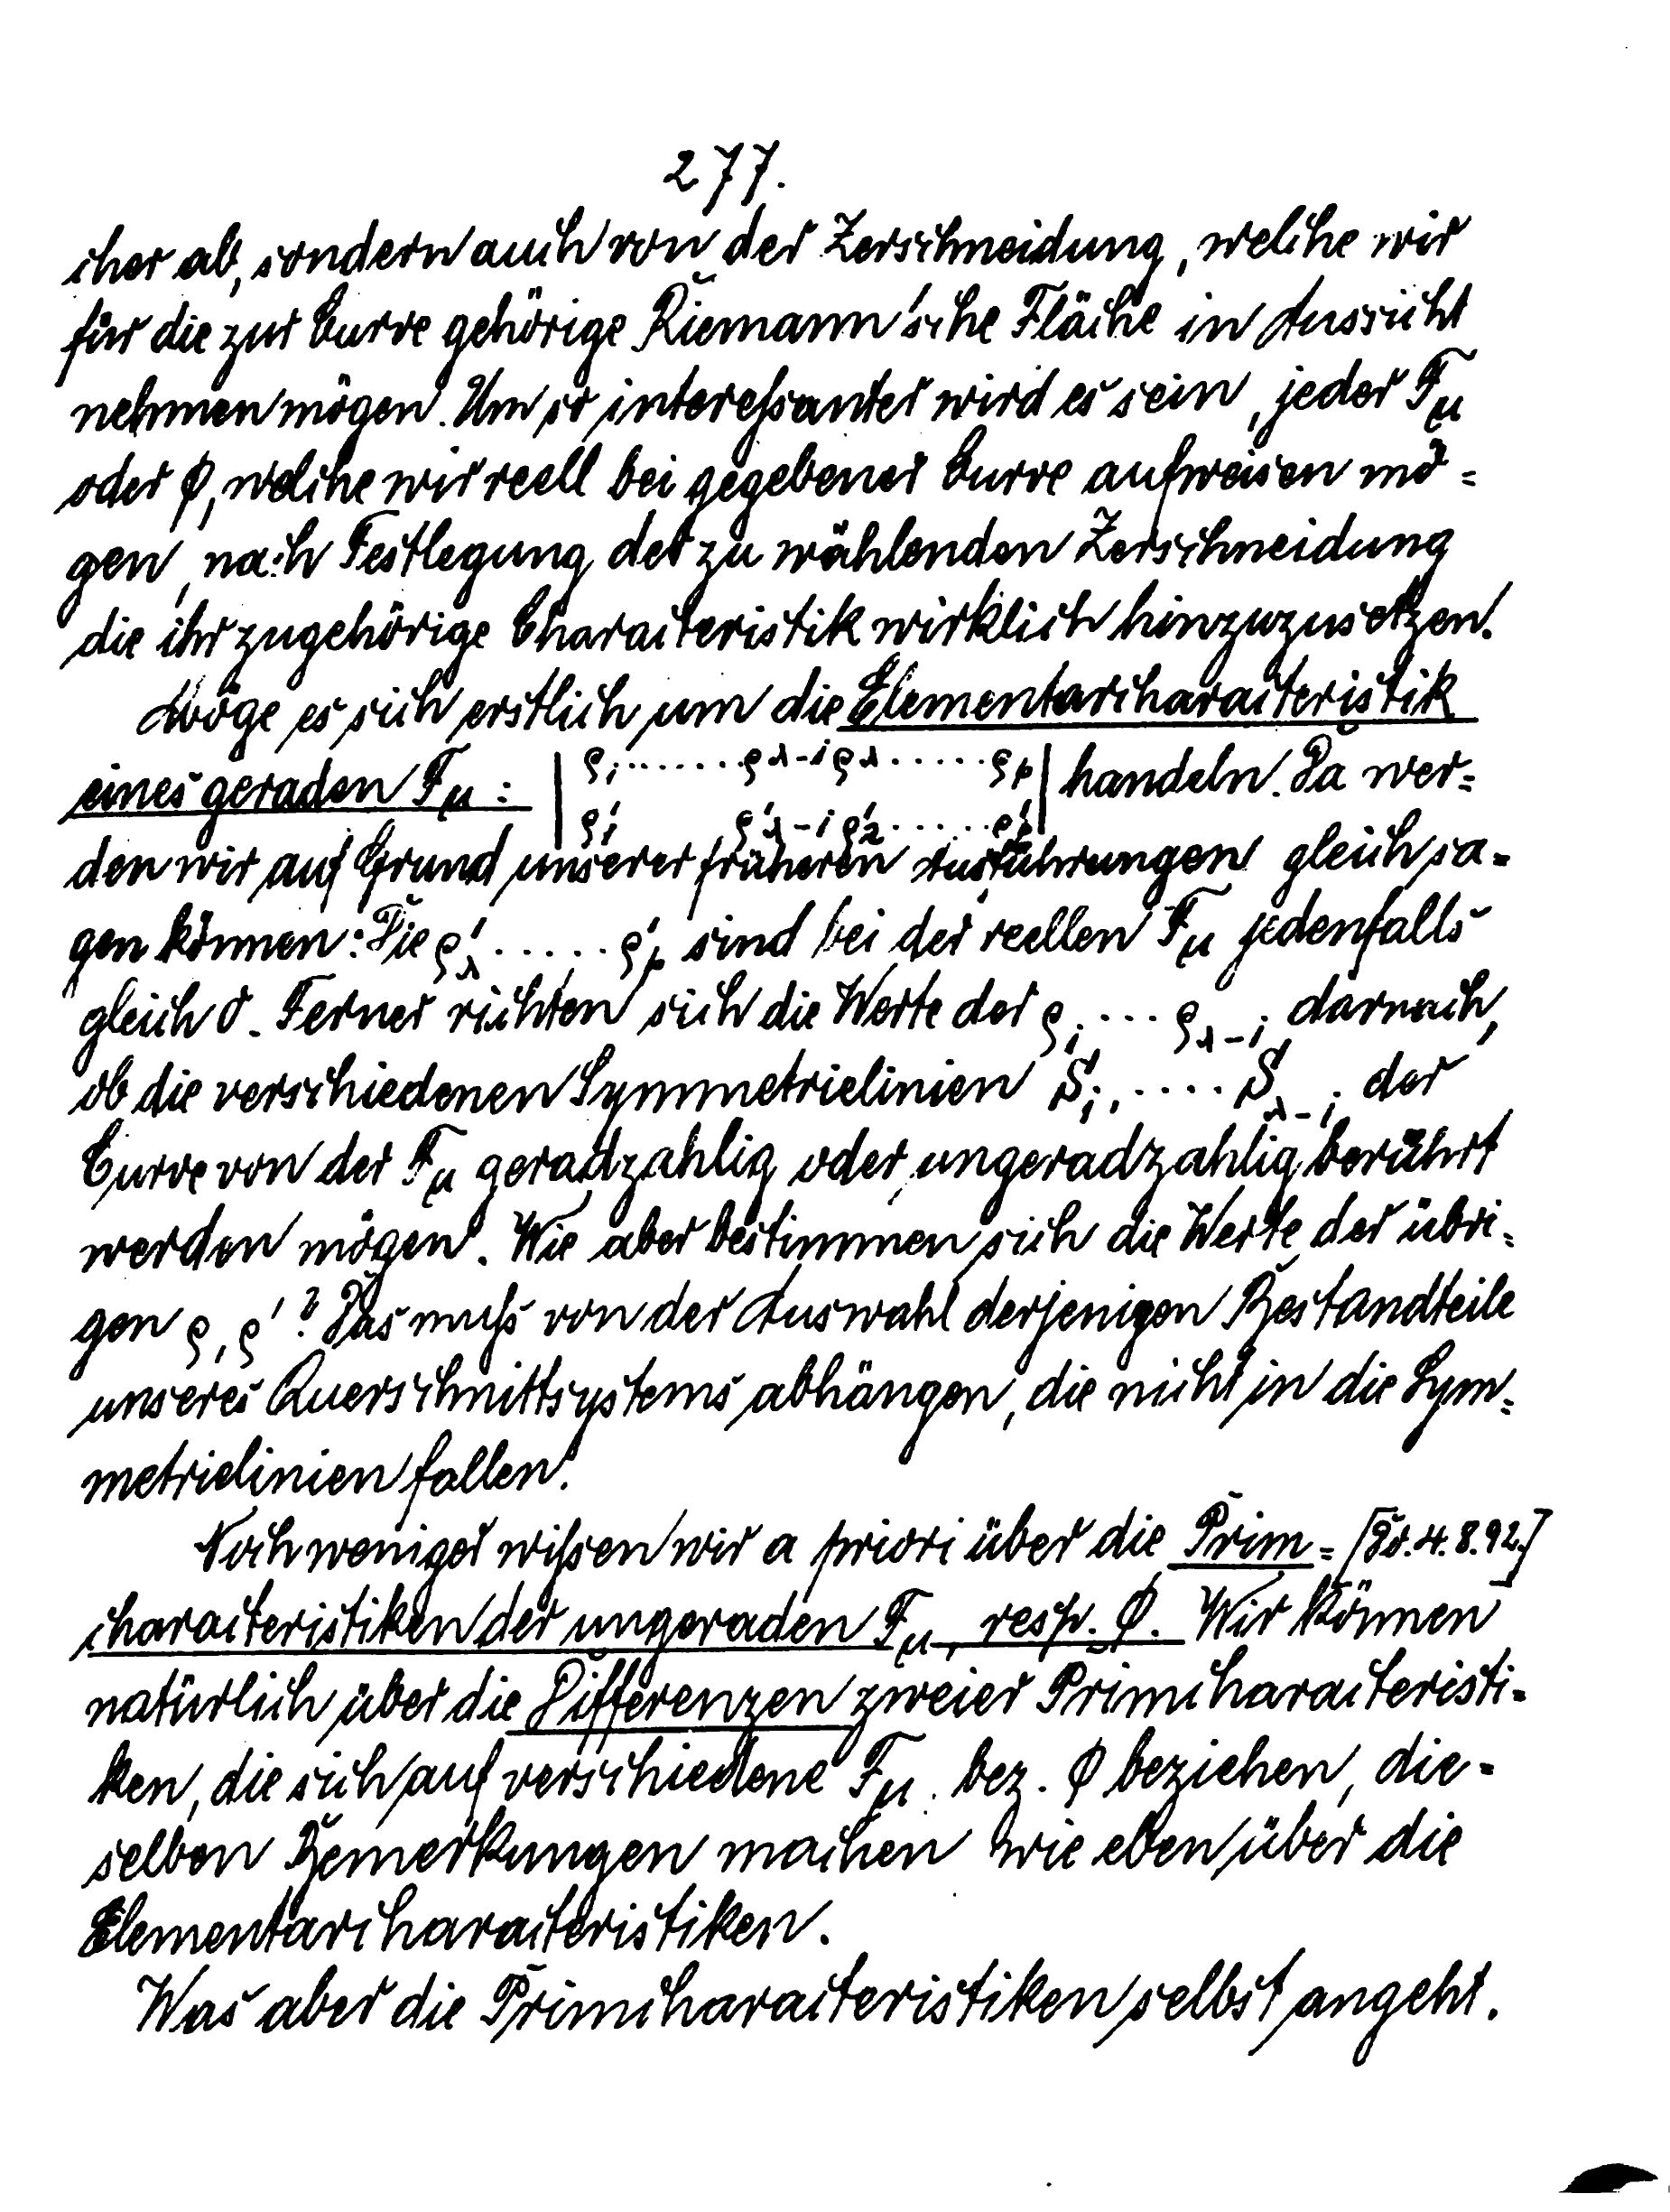 277.
cher ab, sondern auch von der Zerschneidung, welche wir
für die zur Curve gehörige Riemann'sche Fläche in Aussicht
nehmen mögen. Um so interessanter wird es sein, jeder F_μ
oder φ, welche wir reell bei gegebener Curve aufweisen mö=
gen, nach Festlegung der zu wählenden Zerschneidung
die ihr zugehörige Characteristik wirklich hinzuzusetzen.
Möge es sich erstlich um die Elementarcharacteristik
eines geraden F_μ : | ρ_1 ....... ρ_{λ-1} ρ_λ ...... ρ_p | handeln. Da wer=
ρ'_1 ρ'_{λ-1} ρ'_2 ...... ρ'_p
den wir auf Grund unserer früheren Ausführungen gleich sa=
gen können: Die ρ'_λ ...... ρ'_p sind bei der reellen F_μ jedenfalls
gleich 0. Ferner richten sich die Werte der ρ_1 ... ρ_{λ-1} darnach,
ob die verschiedenen Symmetrielinien S_1, .... S_{λ-1} der
Curve von der F_μ geradzahlig oder ungeradzahlig berührt
werden mögen. Wie aber bestimmen sich die Werte der übri=
gen ρ, ρ'? Das muß von der Auswahl derjenigen Bestandteile
unseres Querschnittsystems abhängen, die nicht in die Sym=
metrielinien fallen.
Noch weniger wissen wir a priori über die Prim= [Do. 4. 8. 92.]
characteristiken der ungeraden F_μ, resp. φ. Wir können
natürlich über die Differenzen zweier Primcharacteristi=
ken, die sich auf verschiedene F_μ. bez. φ beziehen, die=
selben Bemerkungen machen wie eben über die
Elementarcharacteristiken.
Was aber die Primcharacteristiken selbst angeht.